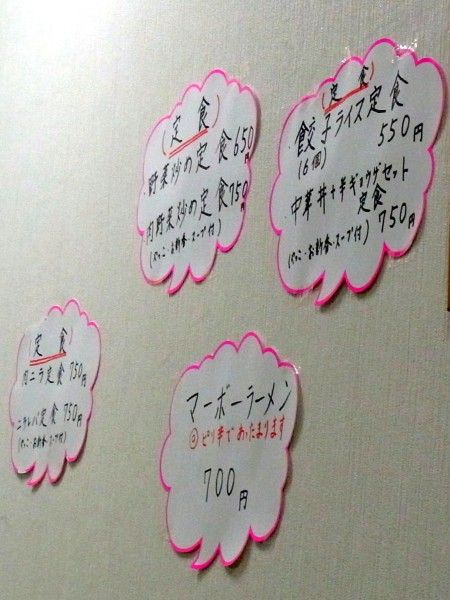 (定食)
野菜炒め定食 650円
肉野菜炒め定食 750円
(やっこ・お新香・スープ付)
(定食)
餃子ライス定食
(6個) 550円
中華丼+半ギョウザセット
定食
750円
(やっこ・お新香・スープ付)
(定食)
肉ニラ定食 750円
ニラレバ定食 750円
(やっこ・お新香・スープ付)
マーボーラーメン
ピリ辛であったまります
700円